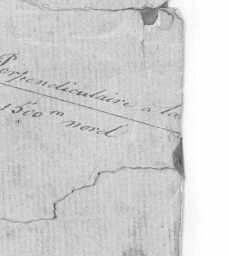 Perpendiculaire a la
1500 m nord